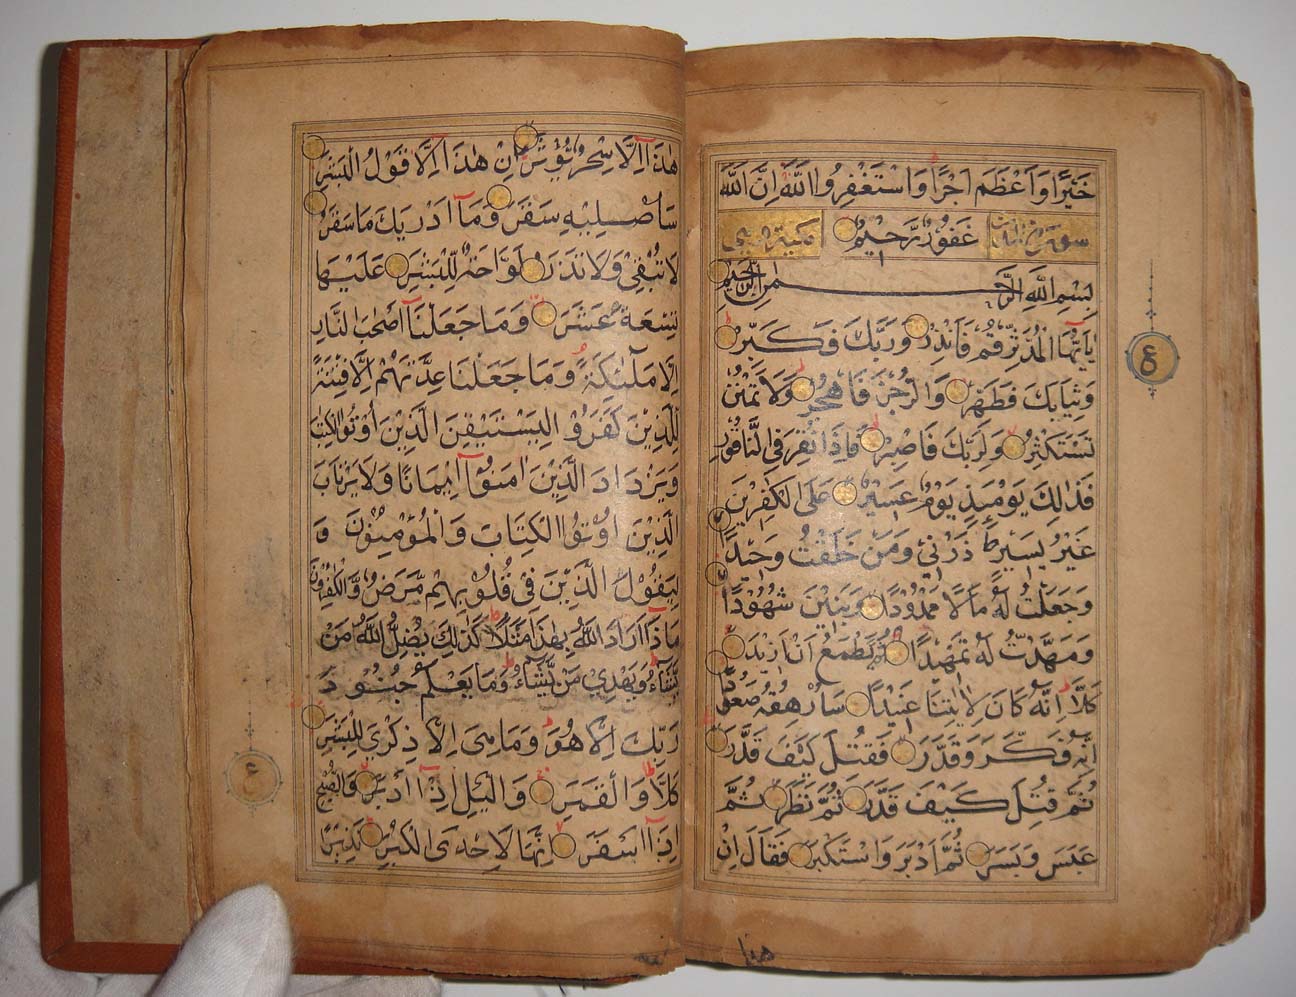 خَيْرًا وَاَعْظَمَ اَجْرًا وَاسْتَغْفِرُوا اللّٰهَ اِنَّ اللّٰهَ
سورة المدثر غَفُورٌ رَّحِيْمٌ مكية وهي
بِسْمِ اللّٰهِ الرَّحْمٰنِ الرَّحِيْمِ
يٰاَيُّهَا الْمُدَّثِّرُ قُمْ فَاَنْذِرْ وَرَبَّكَ فَكَبِّرْ
وَثِيَابَكَ فَطَهِّرْ وَالرُّجْزَ فَاهْجُرْ وَلَا تَمْنُنْ
تَسْتَكْثِرُ وَلِرَبِّكَ فَاصْبِرْ فَاِذَا نُقِرَ فِي النَّاقُوْرِ
فَذٰلِكَ يَوْمَئِذٍ يَوْمٌ عَسِيْرٌ عَلَى الْكٰفِرِيْنَ
غَيْرُ يَسِيْرٍ ط ذَرْنِيْ وَمَنْ خَلَقْتُ وَحِيْدًا
وَجَعَلْتُ لَهٗ مَالًا مَّمْدُوْدًا وَبَنِيْنَ شُهُوْدًا
وَمَهَّدْتُّ لَهٗ تَمْهِيْدًا ثُمَّ يَطْمَعُ اَنْ اَزِيْدَ
كَلَّا اِنَّهٗ كَانَ لِاٰيٰتِنَا عَنِيْدًا سَاُرْهِقُهٗ صَعُوْدًا
اِنَّهٗ فَكَّرَ وَقَدَّرَ فَقُتِلَ كَيْفَ قَدَّرَ
ثُمَّ قُتِلَ كَيْفَ قَدَّرَ ثُمَّ نَظَرَ ثُمَّ
عَبَسَ وَبَسَرَ ثُمَّ اَدْبَرَ وَاسْتَكْبَرَ فَقَالَ اِنْ
ع
هٰذَا
هٰذَا اِلَّا سِحْرٌ يُّؤْثَرُ اِنْ هٰذَا اِلَّا قَوْلُ الْبَشَرِ
سَاُصْلِيْهِ سَقَرَ وَمَا اَدْرٰيكَ مَا سَقَرُ
لَا تُبْقِيْ وَلَا تَذَرُ لَوَّاحَةٌ لِّلْبَشَرِ عَلَيْهَا
تِسْعَةَ عَشَرَ وَمَا جَعَلْنَا اَصْحٰبَ النَّارِ
اِلَّا مَلٰئِكَةً وَمَا جَعَلْنَا عِدَّتَهُمْ اِلَّا فِتْنَةً
لِّلَّذِيْنَ كَفَرُوْا لِيَسْتَيْقِنَ الَّذِيْنَ اُوْتُوا الْكِتٰبَ
وَيَزْدَادَ الَّذِيْنَ اٰمَنُوْا اِيْمَانًا وَلَا يَرْتَابَ
الَّذِيْنَ اُوْتُوا الْكِتَابَ وَالْمُؤْمِنُوْنَ وَ
لِيَقُوْلَ الَّذِيْنَ فِيْ قُلُوْبِهِمْ مَّرَضٌ وَّالْكٰفِرُوْنَ
مَاذَا اَرَادَ اللّٰهُ بِهٰذَا مَثَلًا كَذٰلِكَ يُضِلُّ اللّٰهُ مَنْ
يَّشَاءُ وَيَهْدِيْ مَنْ يَّشَاءُ وَمَا يَعْلَمُ جُنُوْدَ
رَبِّكَ اِلَّا هُوَ وَمَا هِيَ اِلَّا ذِكْرٰى لِلْبَشَرِ
كَلَّا وَالْقَمَرِ وَالَّيْلِ اِذْ اَدْبَرَ وَالصُّبْحِ
اِذَا اَسْفَرَ اِنَّهَا لَاِحْدَى الْكُبَرِ نَذِيْرًا
ع